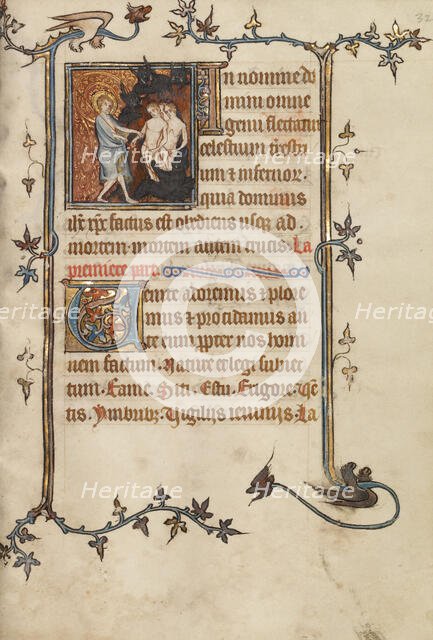 32
In nomine do
mini omne
genu flectatur
celestium terestri
um et infernor.
quia dominus
ihc xpc factus est obediens usq; ad
mortem. mortem autem crucis. La
premiere
Venite adoremus et plore
mus et procidamus an
te eum propter nos homi
nem factum. Nature legi subiec
tum. Fame. Siti. Estu. Frigore. Ven
tis. Ymbribz. Vigiliis ieiuniis. La
Heritage
Heritage
Heritage
Heritage
Heritage
Heritage
Heritage